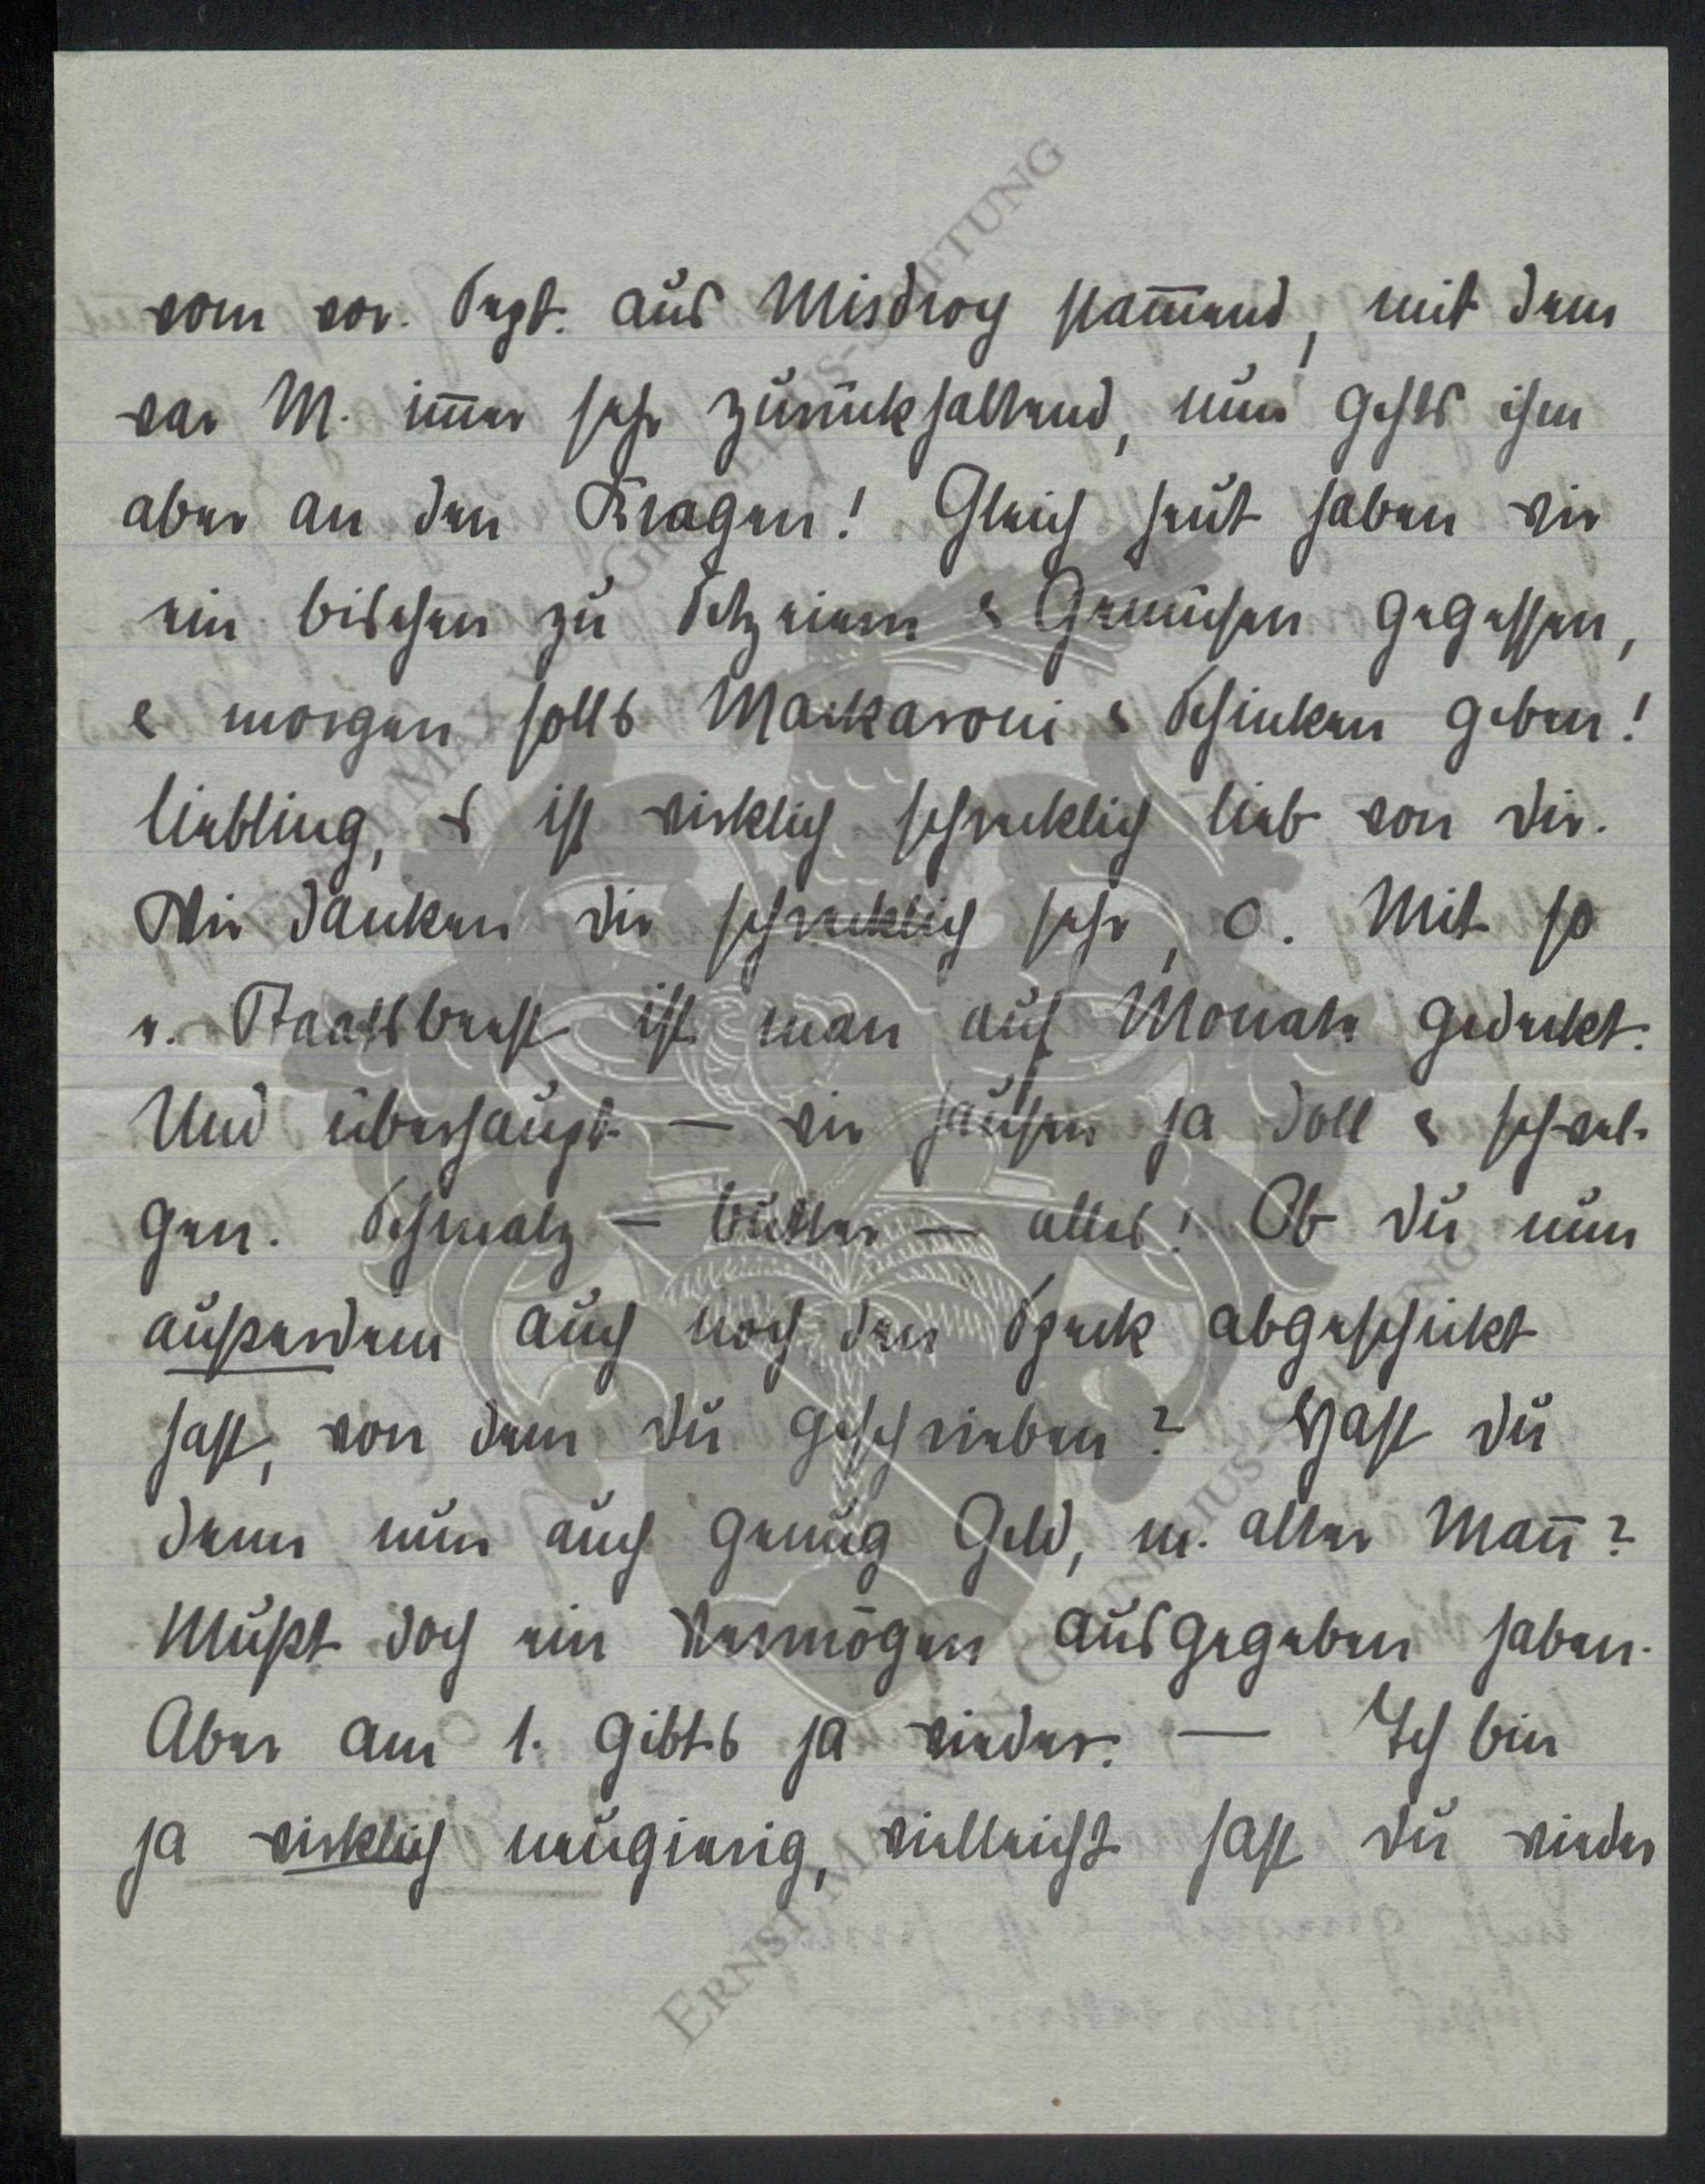 vom vor. Sept. aus Misdroy stam̅end, mit dem
war M. im̅er sehr zurückhaltend, nun gehts ihm
aber an den Kragen! Gleich heut haben wir
ein bischen zu Setzeiern & Gemüsen gegessen,
& morgen solls Mackaroni & Schinken geben!
Liebling, es ist wirklich schrecklich lieb von Dir.
Wir danken Dir schrecklich sehr, O. Mit so
e. Staatsbeast ist man auf Monate gedeckt.
Und überhaupt — wir hausen ja doll & schwel-
gen. Schmalz — Butter — alles! Ob Du nun
außerdem auch noch den Speck abgeschickt
hast, von dem Du geschrieben? Hast Du
denn nun auch genug Geld, m. alter Man̅?
Mußt doch ein Vermögen ausgegeben haben.
Aber am 1. gibts ja wieder. — Ich bin
ja wirklich neugierig, vielleicht hast Du wieder
ERNST MAX VON GRUNELIUS-STIFTUNG
ERNST MAX VON GRUNELIUS-STIFTUNG